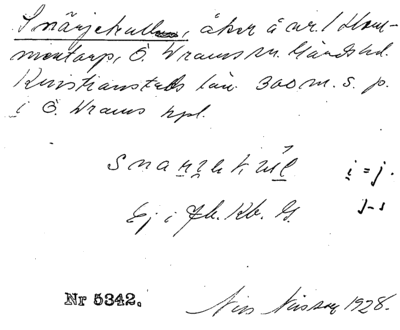 Snärjekullen, åker å nr. 1 Hom-
mentorp, Ö. Wrams sn. Gärds hd.
Kristianstads län. 300 m. S. p.
i Ö. Wrams kpl.
i = j.
Ej i Jb. Kb. G.
Nr 5342.
Nils Nilsson 1928.